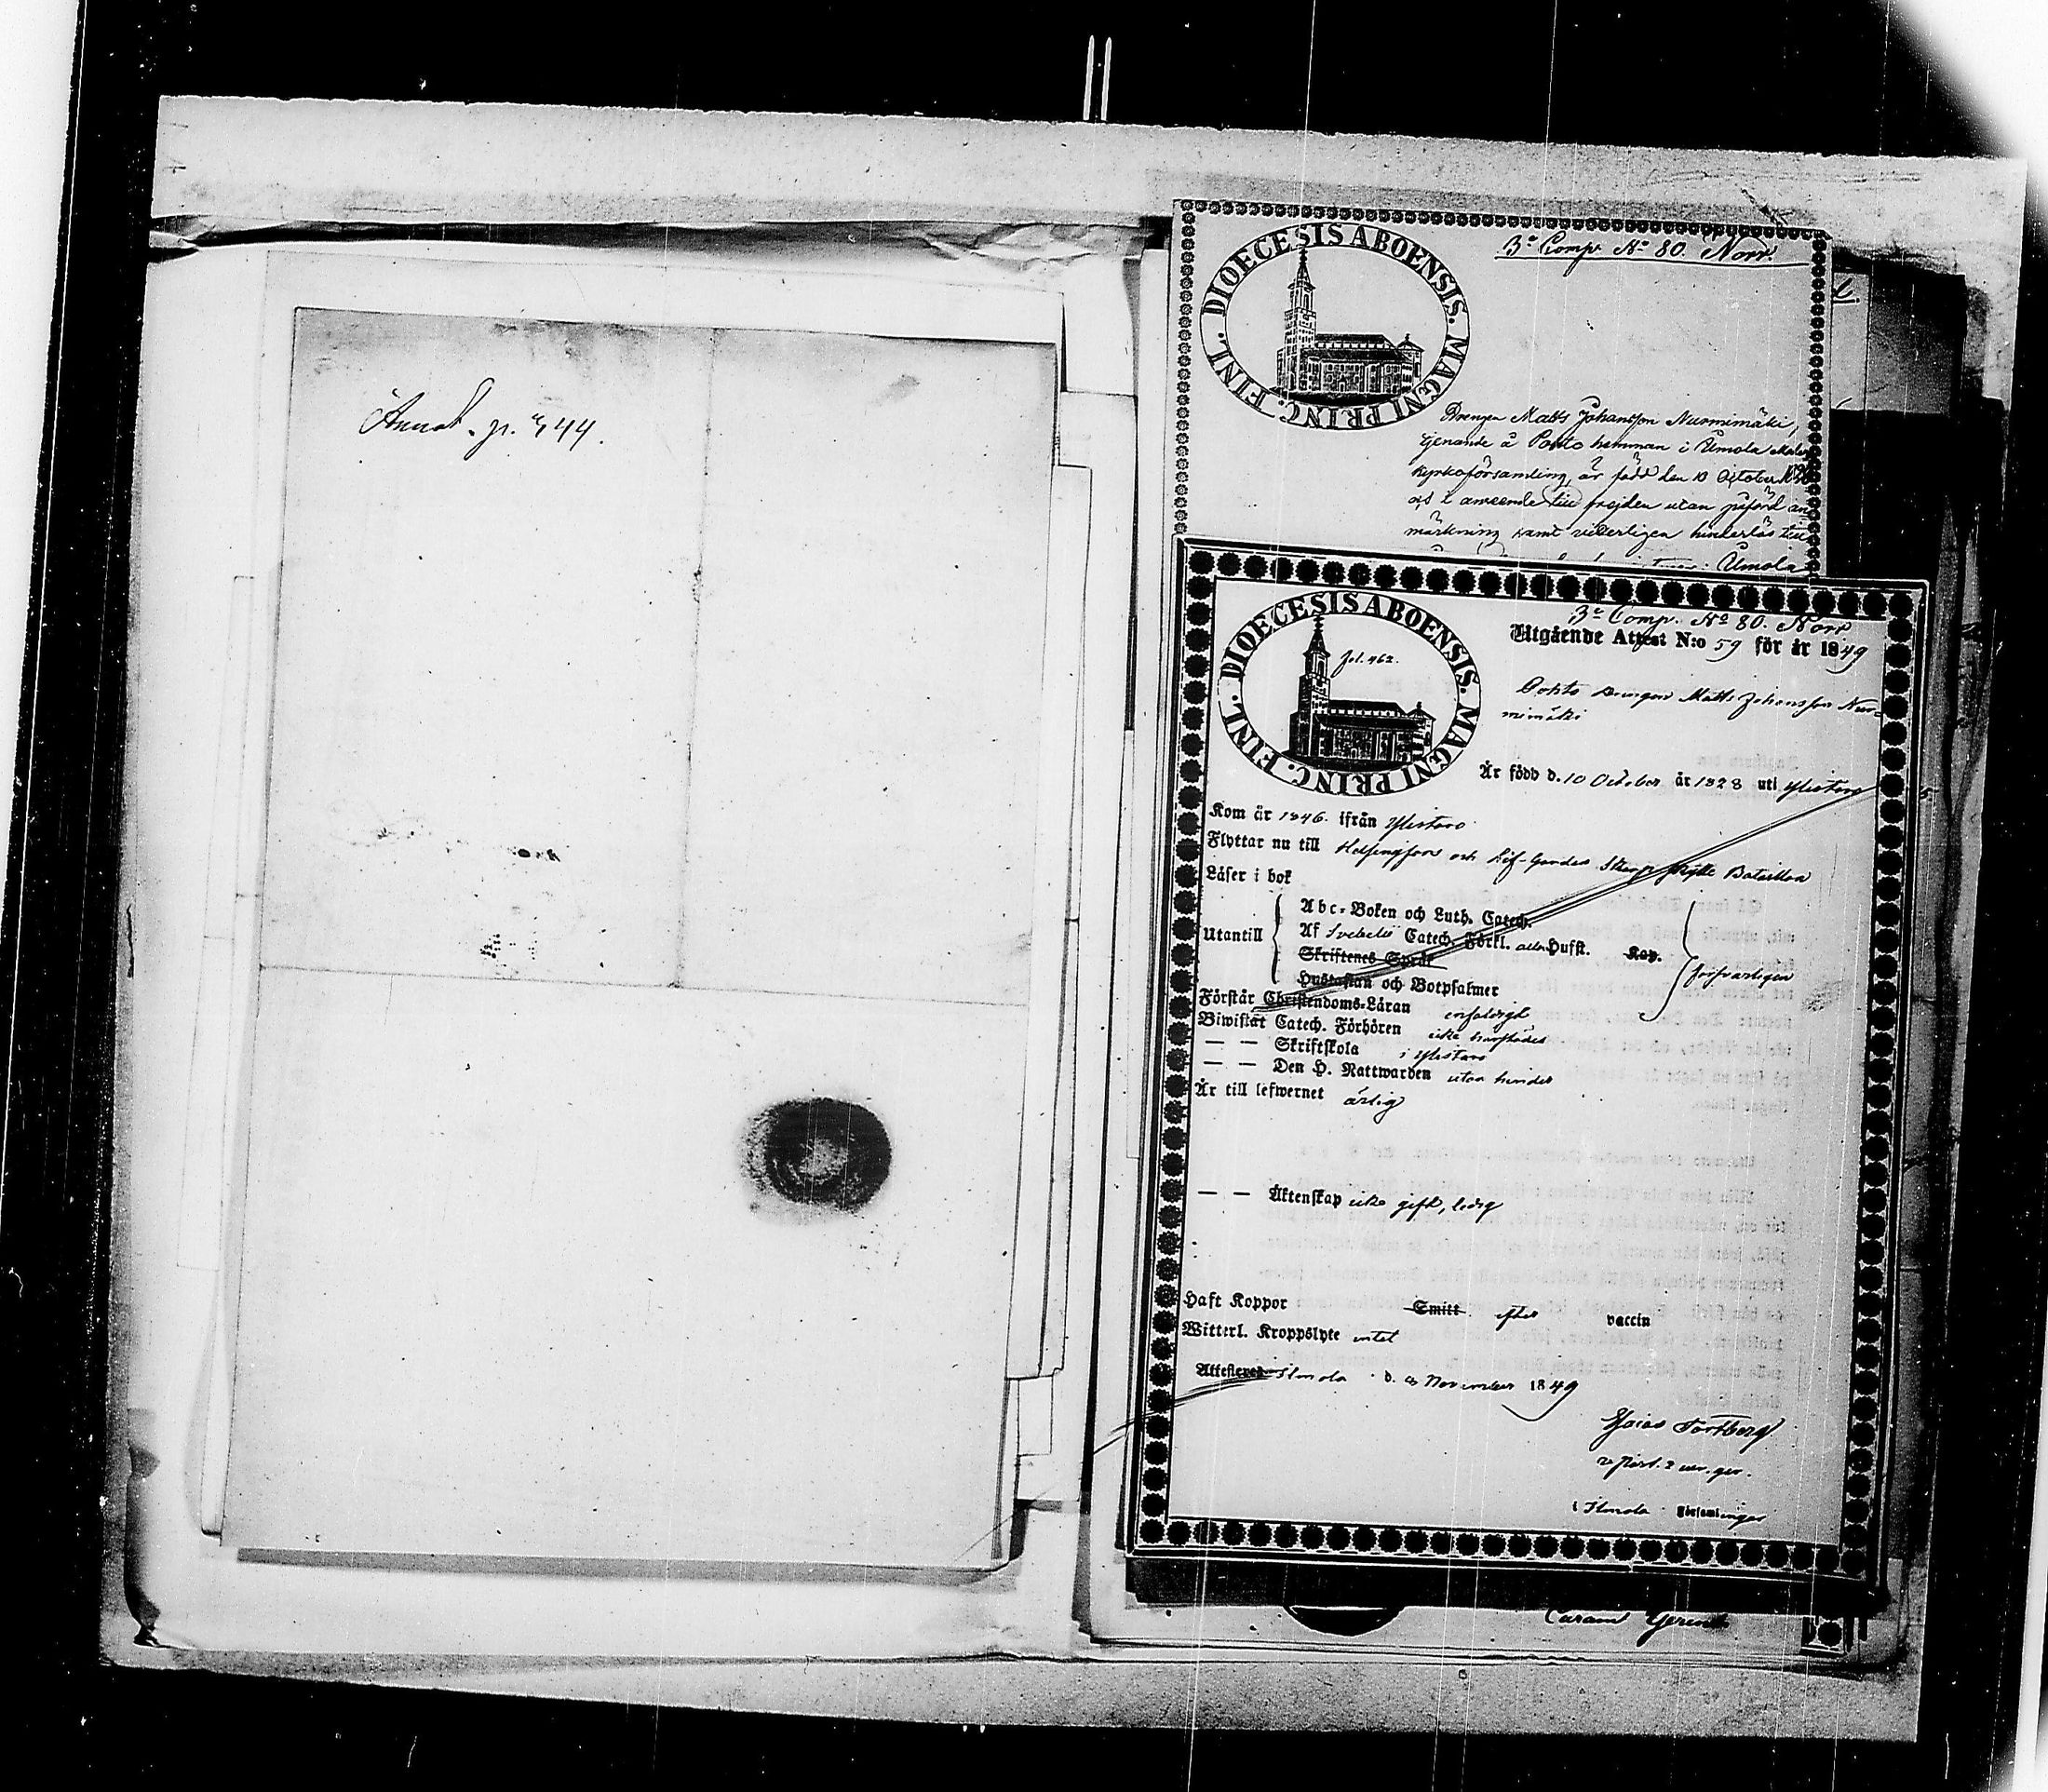 Annot. p. 344.
DIOECESIS ABOENSIS. MAGNI PRINC. FINL.
3e Comp. No 80. Norr.
Drengen Matts Johansson Nurmimäki,
tjenande å Ponto hemman i Ilmola Moder
kyrkoförsamling, är född den 10 October 1828
och i anseende till frejden utan påförd an
märkning samt vitterligen hinderlös till
Ilmola
DIOECESIS ABOENSIS. MAGNI PRINC. FINL.
fol. 462.
3e Comp. No 80. Norr
Utgående Attest N:o 59 för år 1849
Ponto Drengen Matts Johansson Nur-
mimäki
Är född d. 10 October år 1828 uti Ylistaro
Kom år 1846. ifrån Ylistaro
Flyttar nu till Helsingfors och Lif-Gardes Skarp Skytte Bataillon
Läser i bok
Utantill
Abc-Boken och Luth. Catech.
Af Svebelii Catech. Förkl. alla Hufst. Kap.
Skriftenes Språk
Hustaflan och Botpsalmer
försvarligen
Förstår Christendoms-Läran enfaldigt
Biwistat Catech. Förhören icke
— — Skriftskola i Ylistaro
— — Den H. Nattwarden utan hinder
Är till lefwernet ärlig
— — Äktenskap icke gift, ledig
Haft Koppor Smitt efter vaccin
Witterl. Kroppslyte intet
Attesteras Ilmola d. 8 November 1849
Esaias Fortberg
v. past.
i Ilmola Församlingar